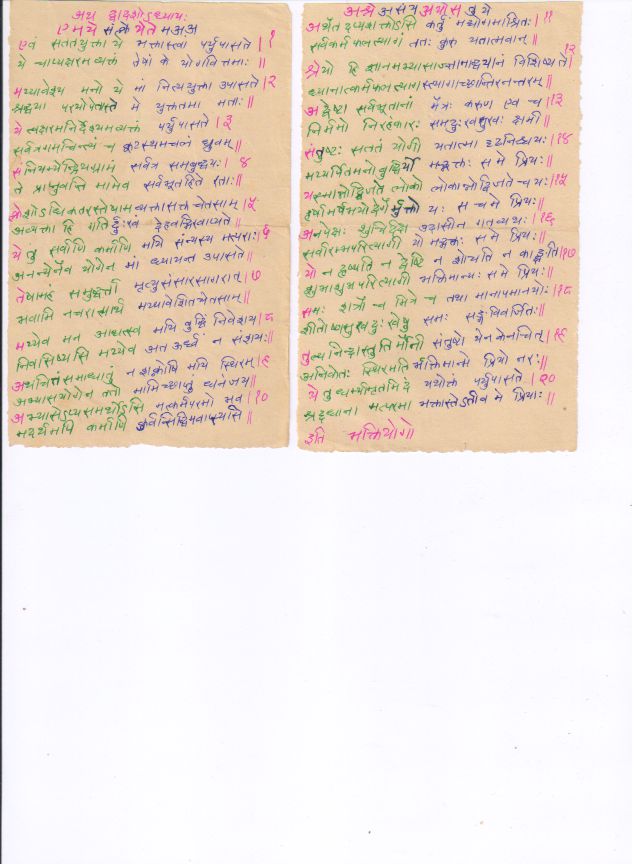 अथ द्वादशोऽध्यायः
ए म ये सं क्ले ये ते म अ अ
एवं सततयुक्ता ये भक्तास्त्वां पर्युपासते | १
ये चाप्यक्षरमव्यक्तं तेषां के योगवित्तमाः ||
मय्यावेश्य मनो ये मां नित्ययुक्ता उपासते | २
श्रद्धया परयोपेतास्ते मे युक्ततमा मताः ||
ये त्वक्षरमनिर्देश्यमव्यक्तं पर्युपासते | ३
सर्वत्रगमचिन्त्यं च कूटस्थमचलं ध्रुवम् ||
संनियम्येन्द्रियग्रामं सर्वत्र समबुद्धयः | ४
ते प्राप्नुवन्ति मामेव सर्वभूतहिते रताः ||
क्लेशोऽधिकतरस्तेषामव्यक्तासक्तचेतसाम् | ५
अव्यक्ता हि गतिर्दुःखं देहवद्भिरवाप्यते ||
ये तु सर्वाणि कर्माणि मयि संन्यस्य मत्पराः | ६
अनन्येनैव योगेन मां ध्यायन्त उपासते ||
तेषामहं समुद्धर्ता मृत्युसंसारसागरात् | ७
भवामि नचिरात्पार्थ मय्यावेशितचेतसाम् ||
मय्येव मन आधत्स्व मयि बुद्धिं निवेशय | ८
निवसिष्यसि मय्येव अत ऊर्ध्वं न संशयः ||
अथ चित्तं समाधातुं न शक्नोषि मयि स्थिरम् | ९
अभ्यासयोगेन ततो मामिच्छाप्तुं धनंजय ||
अभ्यासेऽप्यसमर्थोऽसि मत्कर्मपरमो भव | १०
मदर्थमपि कर्माणि कुर्वन्सिद्धिमवाप्स्यसि ||
अ श्रे अ सं य अ यो स तु ये
अथैतदप्यशक्तोऽसि कर्तुं मद्योगमाश्रितः | ११
सर्वकर्मफलत्यागं ततः कुरु यतात्मवान् ||
श्रेयो हि ज्ञानमभ्यासाज्ज्ञानाद्ध्यानं विशिष्यते | १२
ध्यानात्कर्मफलत्यागस्त्यागाच्छान्तिरनन्तरम् ||
अद्वेष्टा सर्वभूतानां मैत्रः करुण एव च | १३
निर्ममो निरहंकारः समदुःखसुखः क्षमी ||
संतुष्टः सततं योगी यतात्मा दृढनिश्चयः | १४
मय्यर्पितमनोबुद्धिर्यो मद्भक्तः स मे प्रियः ||
यस्मान्नोद्विजते लोको लोकान्नोद्विजते च यः | १५
हर्षामर्षभयोद्वेगैर्मुक्तो यः स च मे प्रियः ||
अनपेक्षः शुचिर्दक्ष उदासीन गतव्यथः | १६
सर्वारम्भपरित्यागी यो मद्भक्तः स मे प्रियः ||
यो न हृष्यति न द्वेष्टि न शोचति न काङ्क्षति | १७
शुभाशुभपरित्यागी भक्तिमान्यः स मे प्रियः ||
समः शत्रौ च मित्रे च तथा मानापमानयोः | १८
शीतोष्णसुखदुःखेषु समः सङ्गविवर्जितः ||
तुल्यनिन्दास्तुतिर्मौनी संतुष्टो येन केनचित् | १९
अनिकेतः स्थिरमतिर्भक्तिमान्मे प्रियो नरः ||
ये तु धर्म्यामृतमिदं यथोक्तं पर्युपासते | २०
श्रद्दधाना मत्परमा भक्तास्तेऽतीव मे प्रियाः ||
इति भक्तियोगो ||